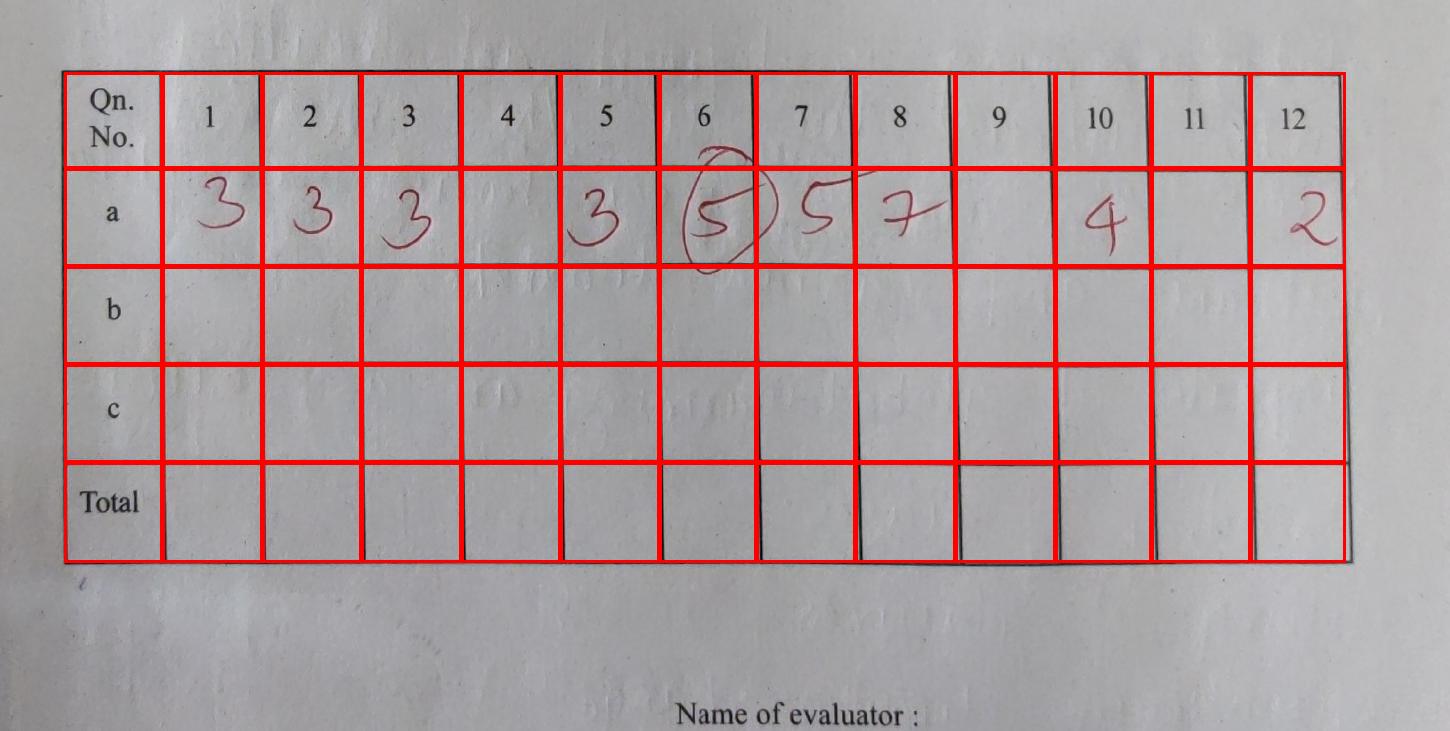 Qn. No. 1 2 3 4 5 6 7 8 9 10 11 12
a 3 3 3 3 5 5 7 4 2
b
c
Total
Name of evaluator :